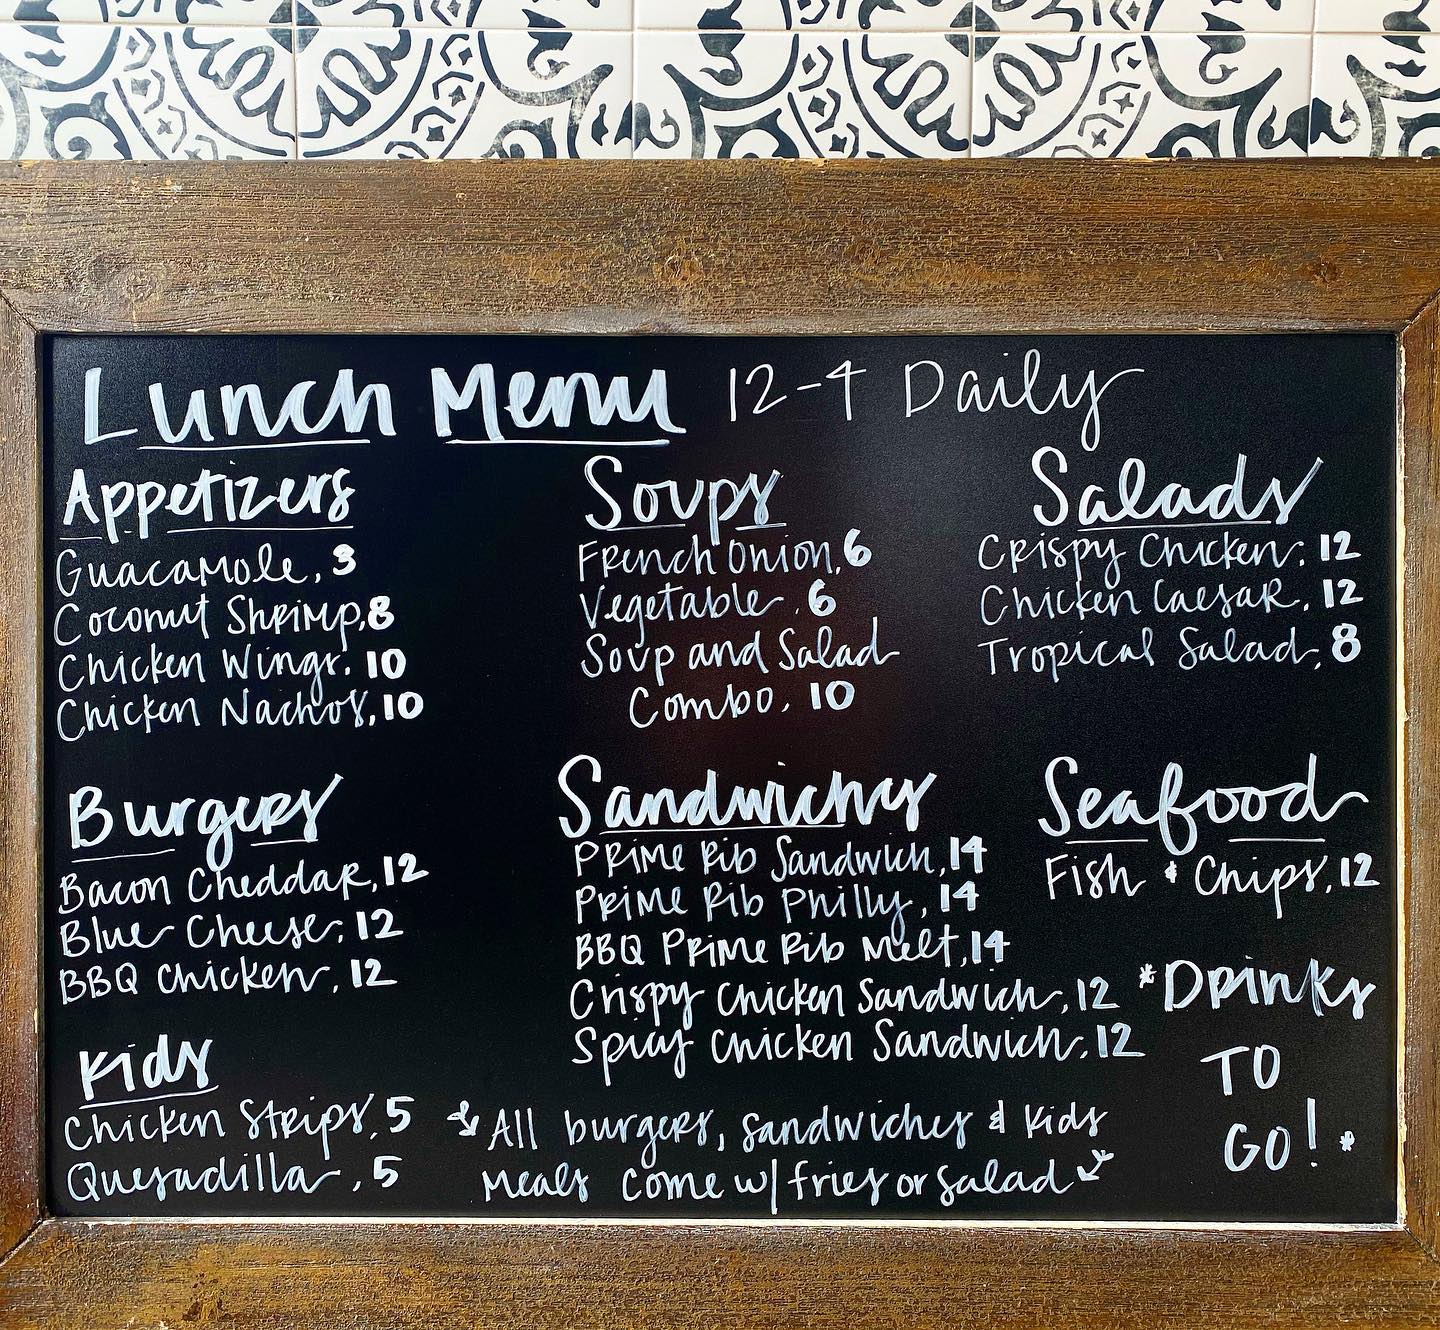 Lunch Menu 12-4 Daily
Appetizers
Guacamole, 3
Coconut Shrimp, 8
Chicken Wings, 10
Chicken Nachos, 10
Soups
French Onion, 6
Vegetable, 6
Soup and Salad
Combo, 10
Salads
Crispy Chicken, 12
Chicken Caesar, 12
Tropical Salad, 8
Burgers
Bacon Cheddar, 12
Blue Cheese, 12
BBQ Chicken, 12
Sandwiches
Prime Rib Sandwich, 14
Prime Rib Philly, 14
BBQ Prime Rib Melt, 14
Crispy Chicken Sandwich, 12
Spicy Chicken Sandwich, 12
Seafood
Fish & Chips, 12
*Drinks
TO
GO!*
Kids
Chicken Strips, 5
Quesadilla, 5
All burgers, sandwiches & kids
meals come w/ fries or salad